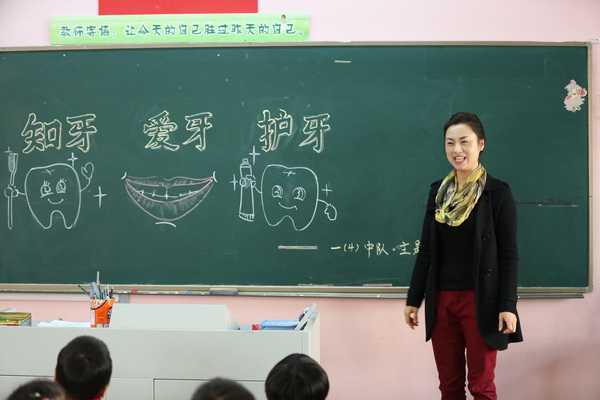 教师寄语：让今天的自己胜过昨天的自己。
知牙 爱牙 护牙
一(4)中队·主